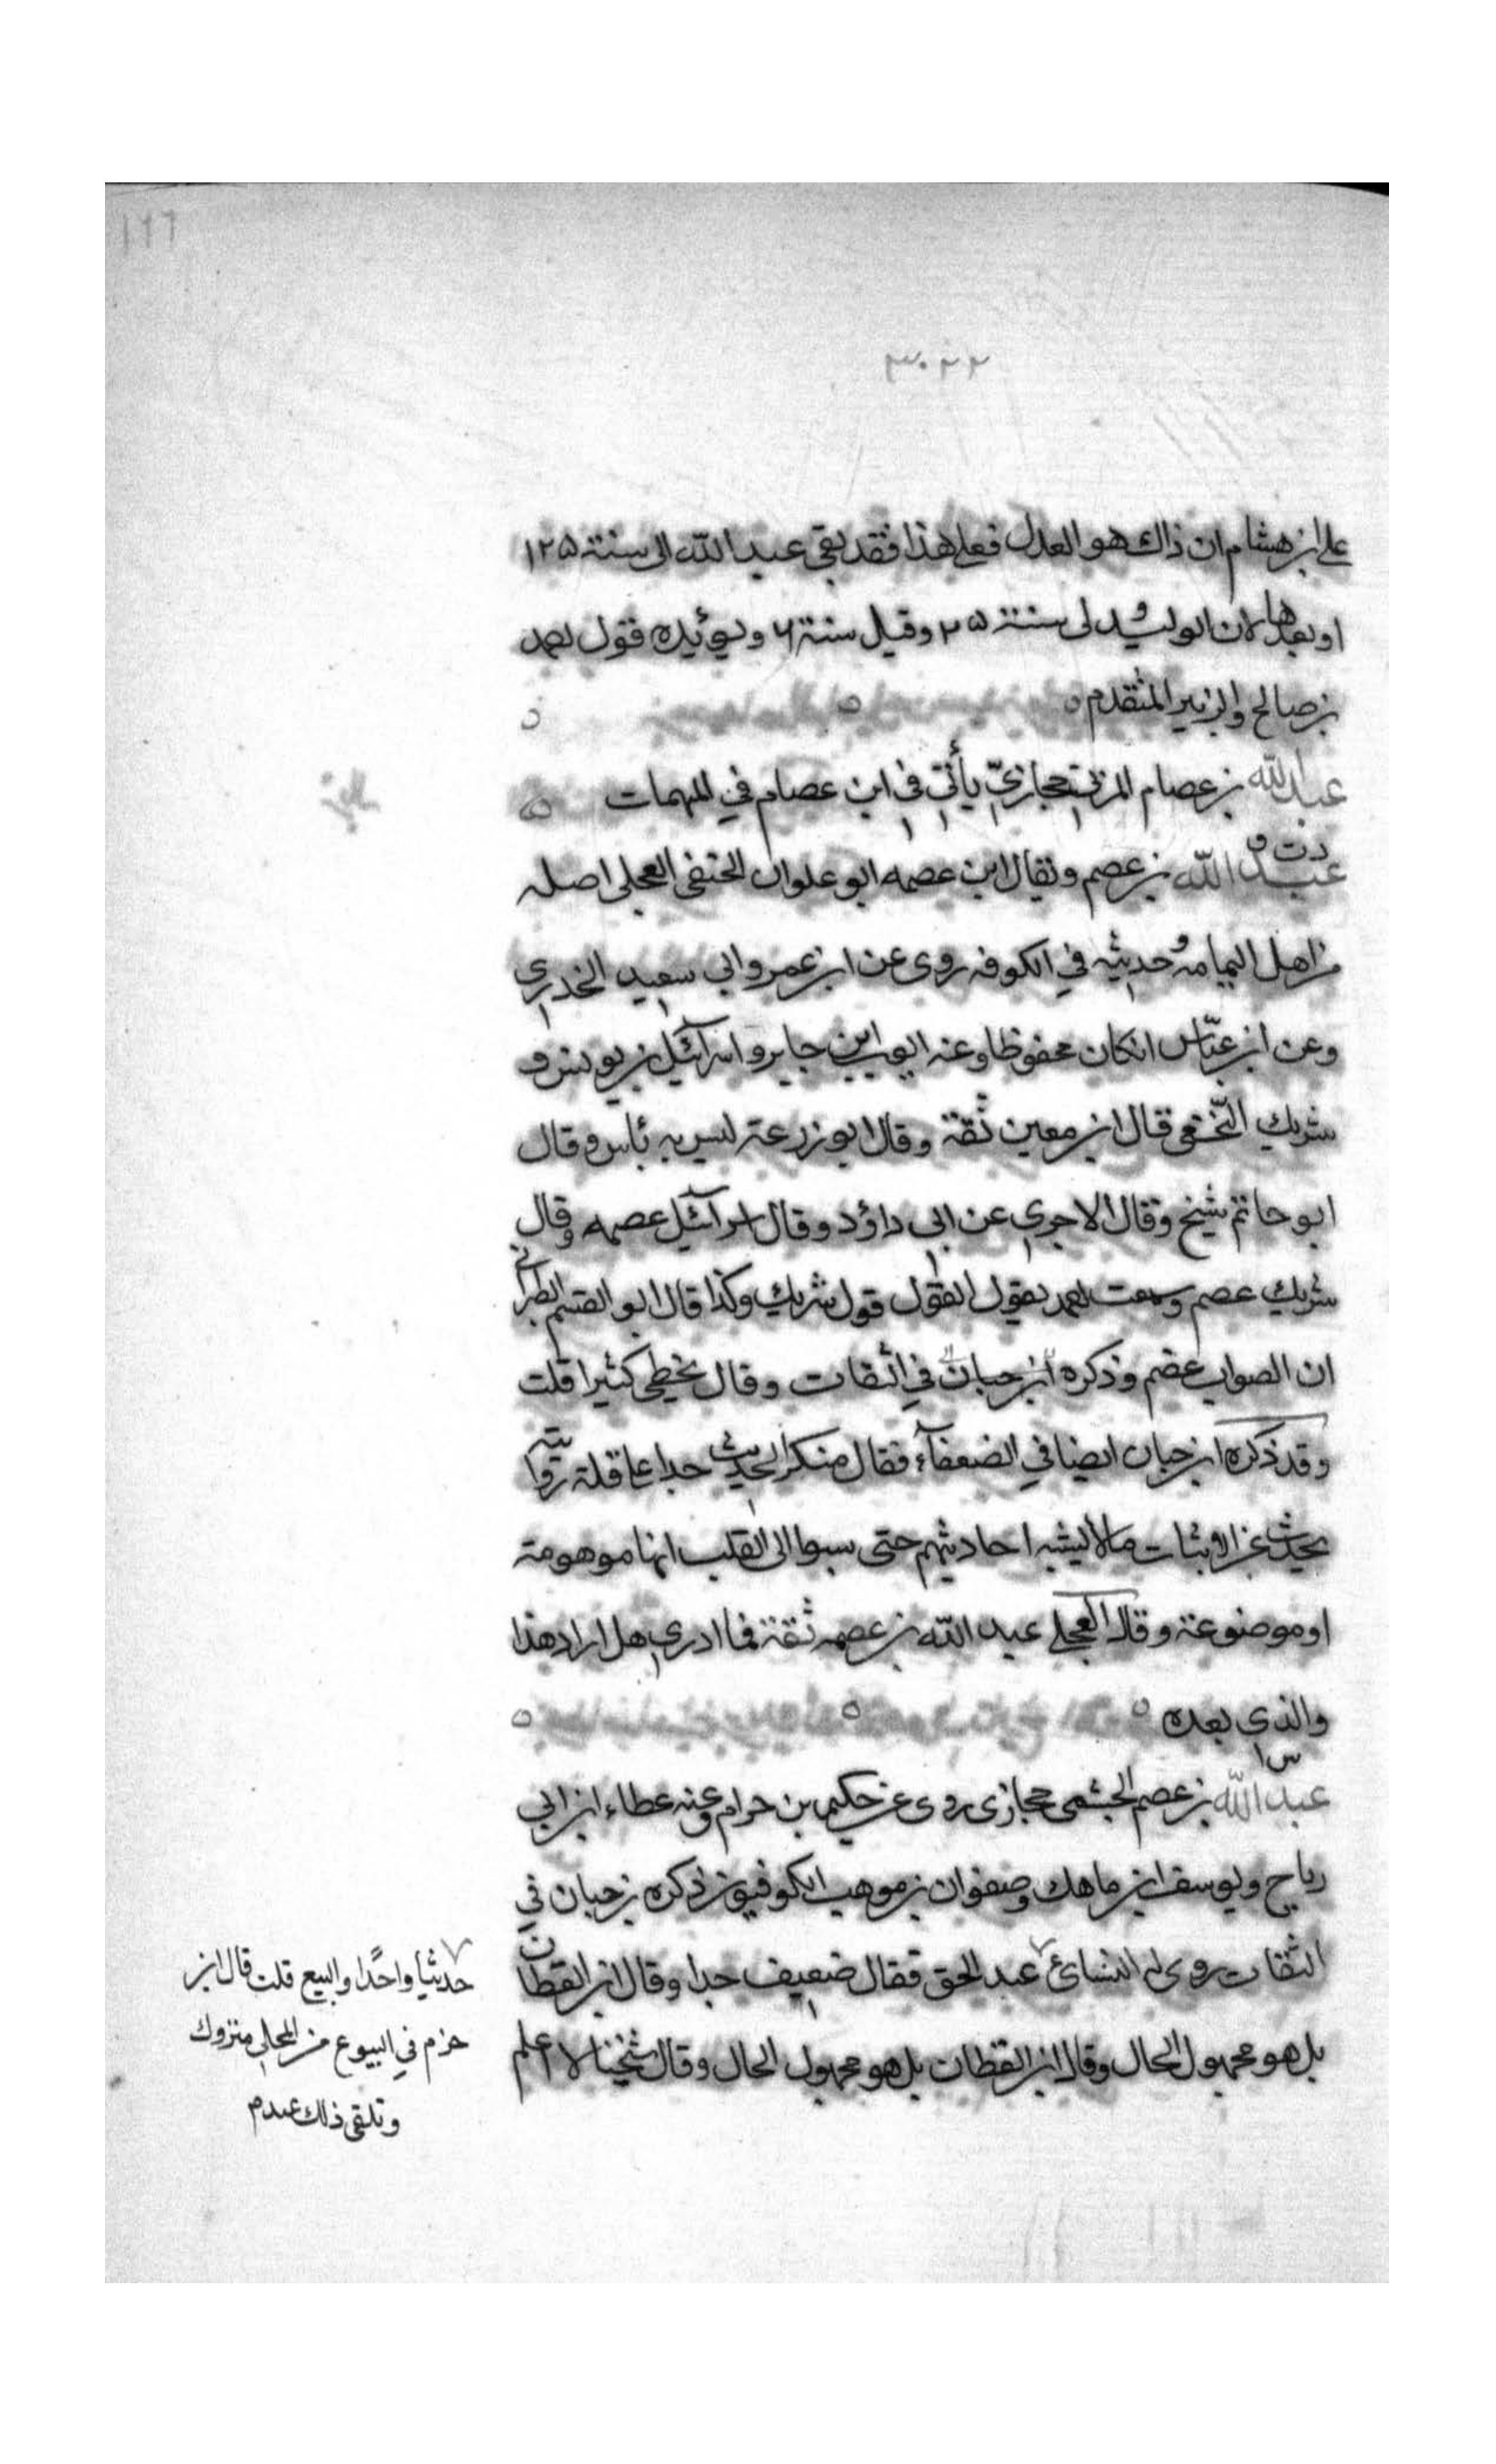 ١٦٦
٣٠٢٢
على ابن هشام ان ذاك هو العدل فعلى هذا فقد بقى عبد الله الى سنة ١٢٥
او بعدها لان الوليد ولى سنة ٢٥ وقيل سنة ٦ ويؤيده قول
بن صالح والزبير المتقدم
عبد الله بن عصام المزني حجازيّ يأتي في ابن عصام في المبهمات
د ت
عبد الله بن عصم ويقال ابن عصمه ابو علوان الحنفي العجلي اصله
من اهل اليمامه وحديثه في الكوفه روى عن ابن عمر وابي سعيد الخدري
وعن ابن عبّاس انكان محفوظا وعنه ايوب ابن جابر واسرآئيل بن يونس و
شريك النّخعي قال ابن معين ثقة وقال ابو زرعة ليس به بأس وقال
ابو حاتم شيخ وقال الاجري عن ابى داؤد وقال اسرآئيل عصمه وقال
شريك عصم وسمعت احمد يقول القول قول شريك وكذا قال ابو القسم الطبراني
ان الصواب عصم وذكره ابن حبان في الثقات وقال يخطى كثيرا قلت
وقد ذكره ابن حبان ايضا في الضعفآء فقال منكر الحديث جدا على قلة روايته
يحدث عن الاثبات مالا يشبه احاديثهم حتى سبوا الى القلب انها موهومة
او موضوعة وقال العجلي عبد الله بن عصمه ثقة فما ادري هل اراد هذا
والذي بعده
س
عبد الله بن عصم الجشمي حجازى روى عن حكيم بن حزام وعنه عطاء ابن ابي
رباح ويوسف ابن ماهك وصفوان بن موهب الكوفيون ذكره بن حبان في
الثقات روى له النسائ عبد الحق فقال ضعيف جدا وقال ابن القطان
بل هو مجهول الحال وقال ابن القطان بل هو مجهول الحال وقال شيخنا لا اعلم
حديثا واحدًا والبيع قلت قال ابن
حزم في البيوع من المحلى متروك
وتلقى ذلك عبدم